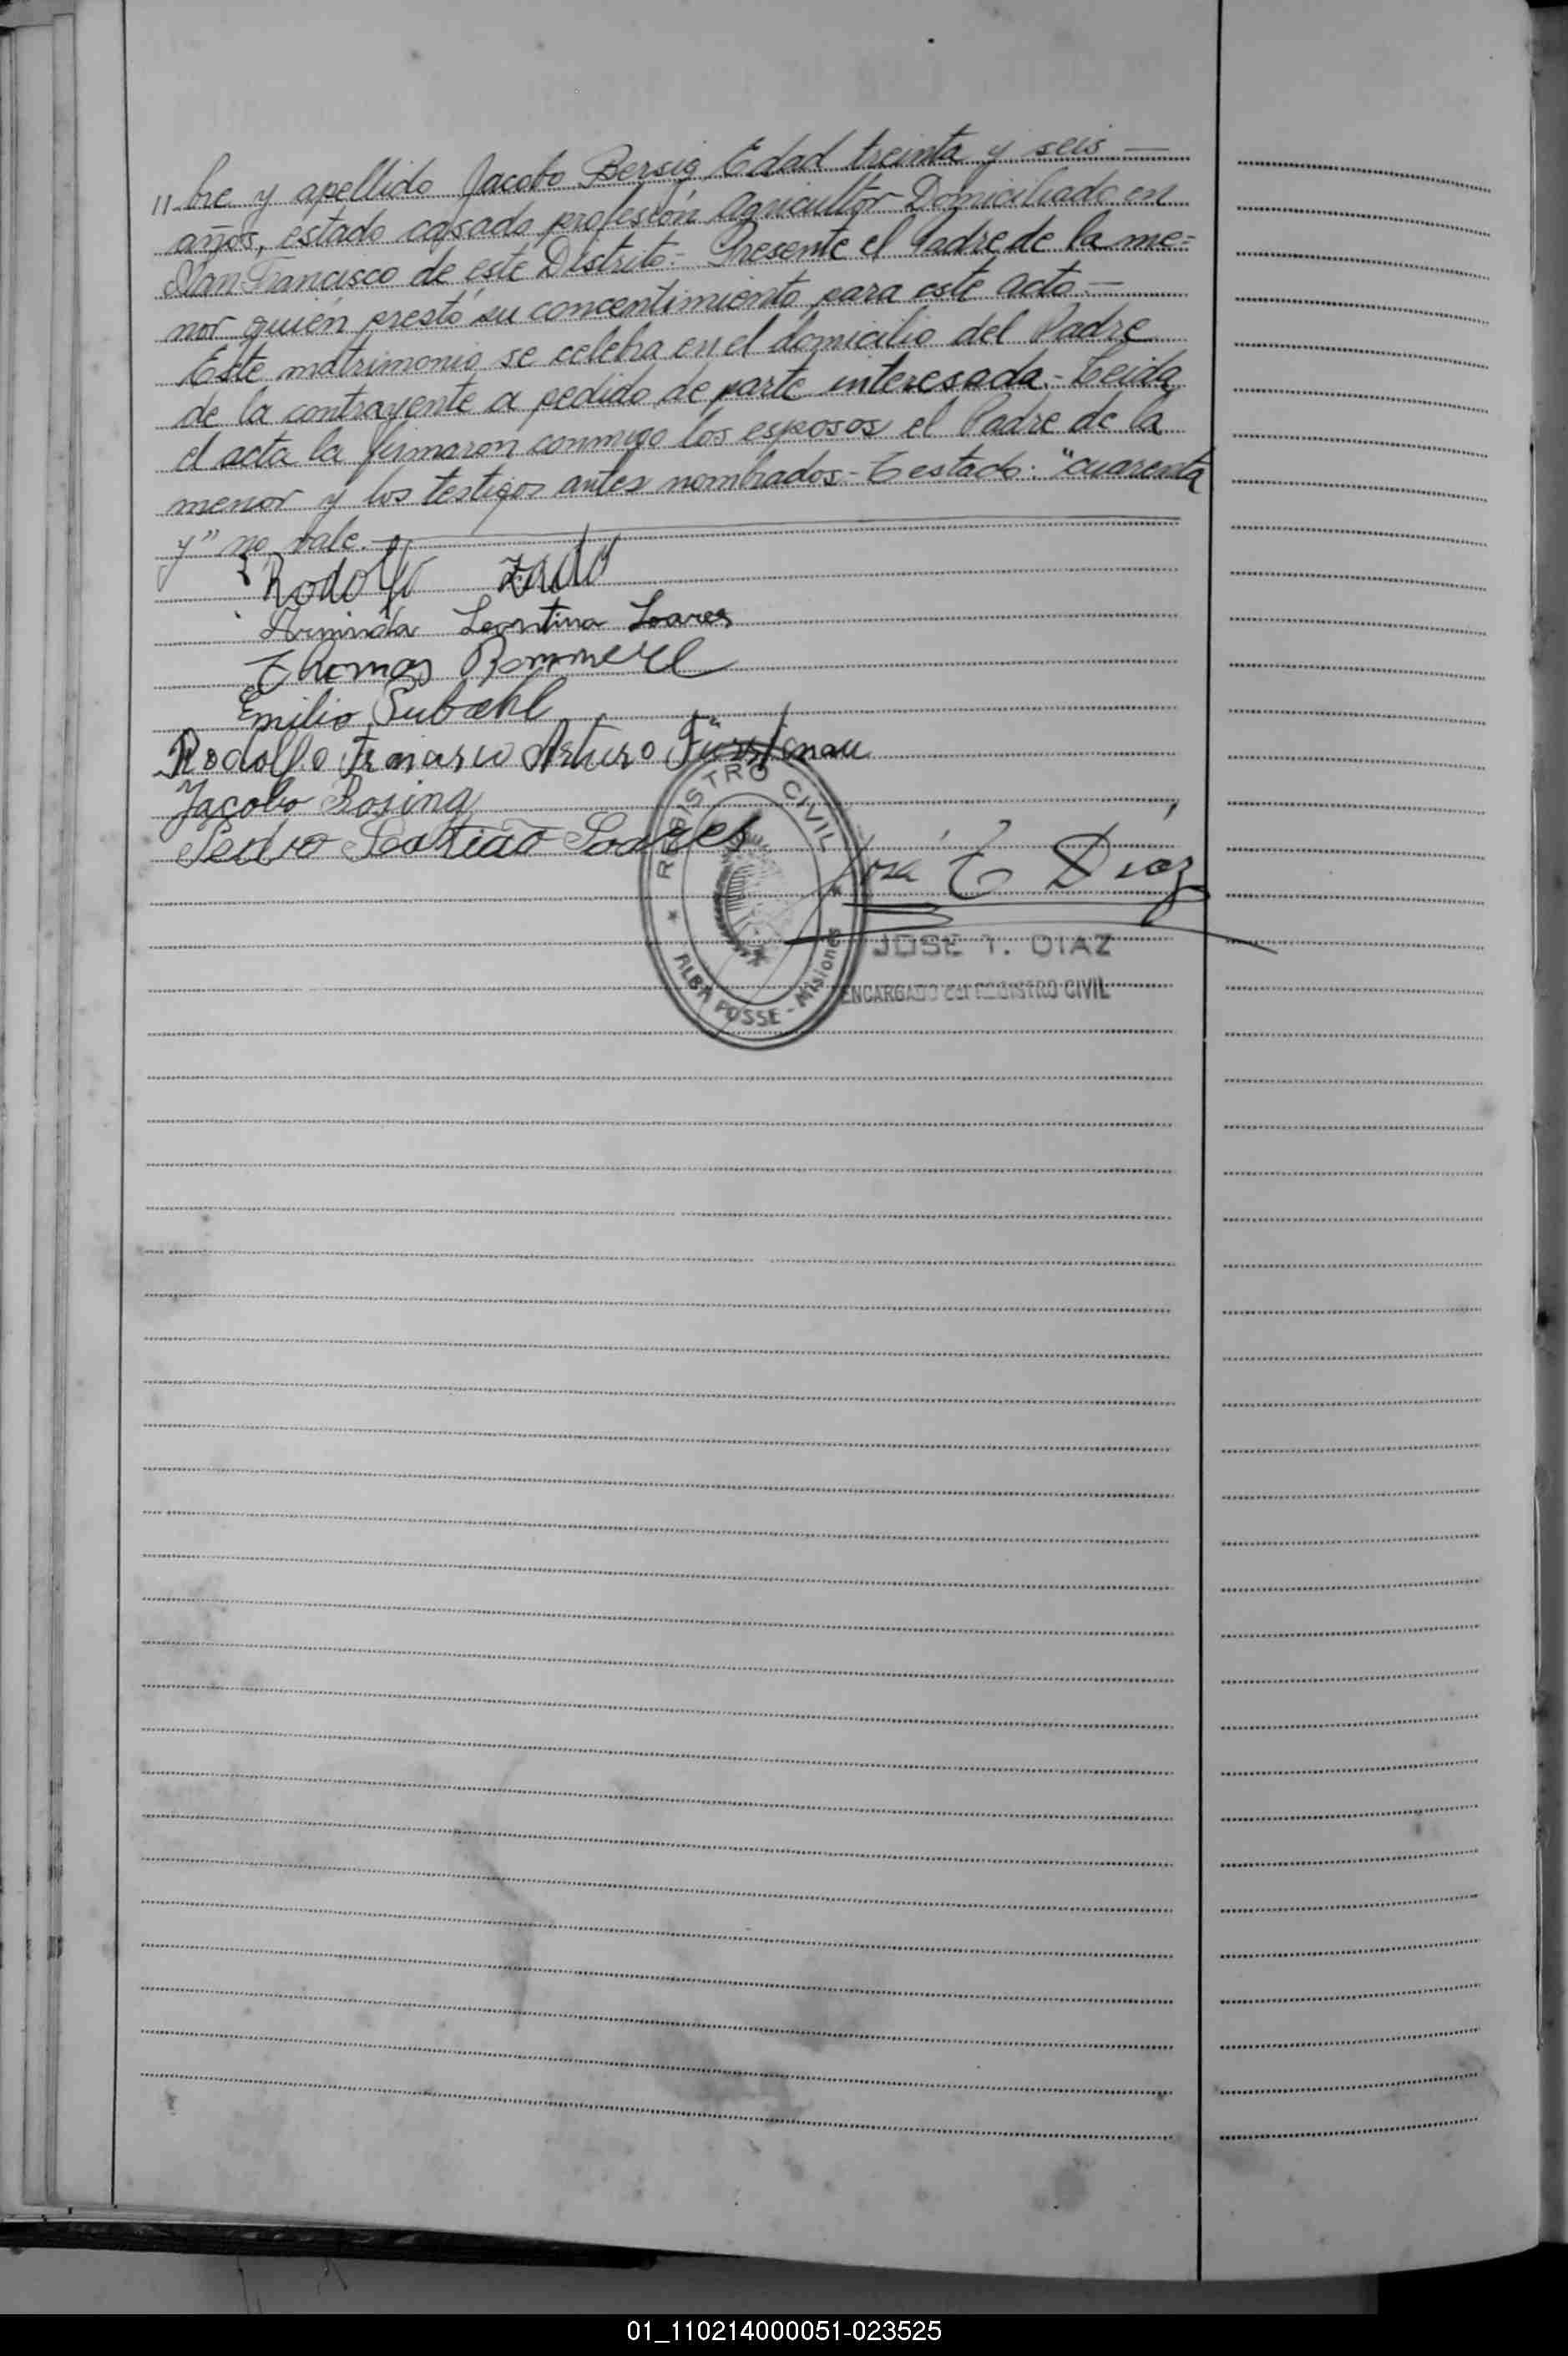 "bre y apellido Jacobo Bersig Edad treinta y seis —
años, estado casado profesión agricultor Domiciliado en
San Francisco de este Distrito.- Presente el Padre de la me=
nor quién prestó su concentimiento para este acto.—
Este matrimonio se celebra en el domicilio del Padre
de la contrayente a pedido de parte interesada.- Leida
el acta la firmaron conmigo los esposos el Padre de la
menor y los testigos antes nombrados - Testado: "cuarenta
y" no vale.
Rodolfo
Arminda Leontina Soares
Thomas Pommere
Emilio
Rodolfo Arturo Fürstenau
Jacobo Rosing
Pedro Soares
REGISTRO CIVIL
José T Díaz
ALBA POSSE - Misiones
JOSÉ T. DIAZ
ENCARGADO DEL REGISTRO CIVIL
01_110214000051-023525